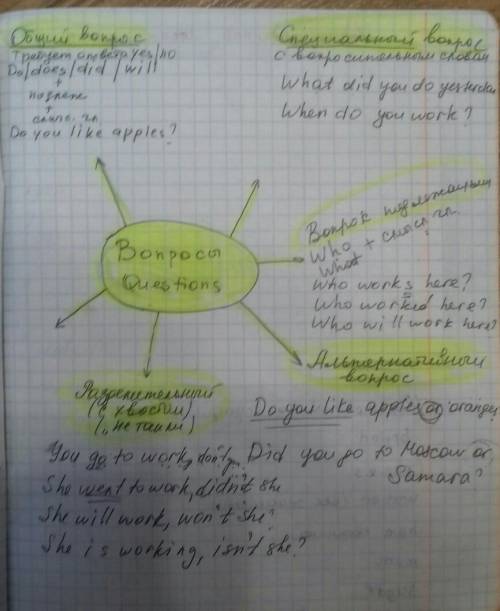 Общий вопрос
Требует ответа yes/no
Do/does/did/will
+
подлеж
+
смысл. гл.
Do you like apples?
Специальный вопрос
с вопросительным словом
What did you do yesterday
When do you work?
Вопрос к подлежащему
Who + смысл. гл.
What
Who works here?
Who worked here?
Who will work here?
Вопросы
Questions
Альтернативный
вопрос
Do you like apples or oranges
Did you go to Moscow or
Samara?
Разделительный
(с хвостом)
(, не так ли)
You go to work, don't
She went to work, didn't she
She will work, won't she?
She is working, isn't she?